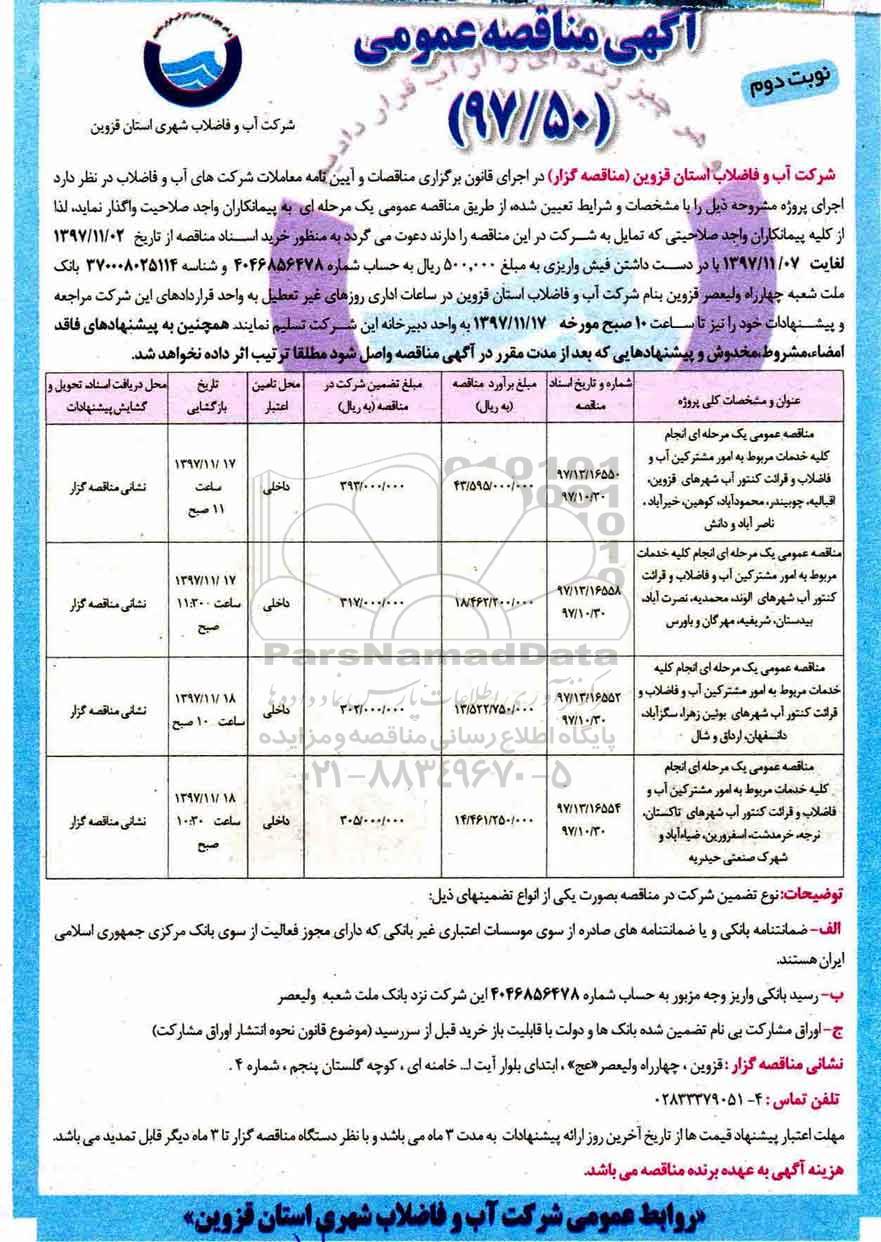 آگهی مناقصه عمومی
(۹۷/۵۰)
نوبت دوم
شرکت آب و فاضلاب شهری استان قزوین
شرکت آب و فاضلاب استان قزوین (مناقصه گزار) در اجرای قانون برگزاری مناقصات و آیین نامه معاملات شرکت های آب و فاضلاب در نظر دارد
اجرای پروژه مشروحه ذیل را با مشخصات و شرایط تعیین شده، از طریق مناقصه عمومی یک مرحله ای به پیمانکاران واجد صلاحیت واگذار نماید، لذا
از کلیه پیمانکاران واجد صلاحیتی که تمایل به شرکت در این مناقصه را دارند دعوت می گردد به منظور خرید اسناد مناقصه از تاریخ ۱۳۹۷/۱۱/۰۲
لغایت ۱۳۹۷/۱۱/۰۷ با در دست داشتن فیش واریزی به مبلغ ۵۰۰,۰۰۰ ریال به حساب شماره ۴۰۴۶۸۵۶۴۷۸ و شناسه ۳۷۰۰۰۸۰۲۵۱۱۴ بانک
ملت شعبه چهارراه ولیعصر قزوین بنام شرکت آب و فاضلاب استان قزوین در ساعات اداری روزهای غیر تعطیل به واحد قراردادهای این شرکت مراجعه
و پیشنهادات خود را نیز تا ساعت ۱۰ صبح مورخه ۱۳۹۷/۱۱/۱۷ به واحد دبیرخانه این شرکت تسلیم نمایند. همچنین به پیشنهادهای فاقد
امضاء،مشروط،مخدوش و پیشنهادهایی که بعد از مدت مقرر در آگهی مناقصه واصل شود مطلقا ترتیب اثر داده نخواهد شد.
عنوان و مشخصات کلی پروژه
شماره و تاریخ اسناد مناقصه
مبلغ برآورد مناقصه (به ریال)
مبلغ تضمین شرکت در مناقصه (به ریال)
محل تامین اعتبار
تاریخ بازگشایی
محل دریافت اسناد، تحویل و گشایش پیشنهادات
مناقصه عمومی یک مرحله ای انجام
کلیه خدمات مربوط به امور مشترکین آب و
فاضلاب و قرائت کنتور آب شهرهای قزوین،
اقبالیه، چوبیندر، محمودآباد، کوهین، خیرآباد،
ناصر آباد و دانش
۹۷/۱۳/۱۶۵۵۰
۹۷/۱۰/۳۰
۴۳/۵۹۵/۰۰۰/۰۰۰
۳۹۳/۰۰۰/۰۰۰
داخلی
۱۳۹۷/۱۱/۱۷
ساعت
۱۱ صبح
نشانی مناقصه گزار
مناقصه عمومی یک مرحله ای انجام کلیه خدمات
مربوط به امور مشترکین آب و فاضلاب و قرائت
کنتور آب شهرهای الوند، محمدیه، نصرت آباد،
بیدستان، شریفیه، مهرگان و باورس
۹۷/۱۳/۱۶۵۵۸
۹۷/۱۰/۳۰
۱۸/۴۶۲/۲۰۰/۰۰۰
۳۱۷/۰۰۰/۰۰۰
داخلی
۱۳۹۷/۱۱/۱۷
ساعت ۱۱:۳۰
صبح
نشانی مناقصه گزار
مناقصه عمومی یک مرحله ای انجام کلیه
خدمات مربوط به امور مشترکین آب و فاضلاب و
قرائت کنتور آب شهرهای بوئین زهرا، سگزآباد،
دانسفهان، ارداق و شال
۹۷/۱۳/۱۶۵۵۲
۹۷/۱۰/۳۰
۱۳/۵۲۲/۷۵۰/۰۰۰
۳۰۲/۰۰۰/۰۰۰
داخلی
۱۳۹۷/۱۱/۱۸
ساعت ۱۰ صبح
نشانی مناقصه گزار
مناقصه عمومی یک مرحله ای انجام
کلیه خدمات مربوط به امور مشترکین آب و
فاضلاب و قرائت کنتور آب شهرهای تاکستان،
نرجه، خرمدشت، اسفرورین، ضیاءآباد و
شهرک صنعتی حیدریه
۹۷/۱۳/۱۶۵۵۴
۹۷/۱۰/۳۰
۱۴/۴۶۱/۲۵۰/۰۰۰
۳۰۵/۰۰۰/۰۰۰
داخلی
۱۳۹۷/۱۱/۱۸
ساعت ۱۰:۳۰
صبح
نشانی مناقصه گزار
ParsNamadData
پایگاه اطلاع رسانی مناقصه و مزایده
۰۲۱-۸۸۳۴۹۶۷۰-۵
توضیحات:نوع تضمین شرکت در مناقصه بصورت یکی از انواع تضمینهای ذیل:
الف- ضمانتنامه بانکی و یا ضمانتنامه های صادره از سوی موسسات اعتباری غیر بانکی که دارای مجوز فعالیت از سوی بانک مرکزی جمهوری اسلامی
ایران هستند.
ب- رسید بانکی واریز وجه مزبور به حساب شماره ۴۰۴۶۸۵۶۴۷۸ این شرکت نزد بانک ملت شعبه ولیعصر
ج- اوراق مشارکت بی نام تضمین شده بانک ها و دولت با قابلیت باز خرید قبل از سررسید (موضوع قانون نحوه انتشار اوراق مشارکت)
نشانی مناقصه گزار : قزوین ، چهارراه ولیعصر«عج» ، ابتدای بلوار آیت ا... خامنه ای ، کوچه گلستان پنجم ، شماره ۴ .
تلفن تماس : ۴- ۰۲۸۳۳۳۷۹۰۵۱
مهلت اعتبار پیشنهاد قیمت ها از تاریخ آخرین روز ارائه پیشنهادات به مدت ۳ ماه می باشد و با نظر دستگاه مناقصه گزار تا ۳ ماه دیگر قابل تمدید می باشد.
هزینه آگهی به عهده برنده مناقصه می باشد.
«روابط عمومی شرکت آب و فاضلاب شهری استان قزوین»